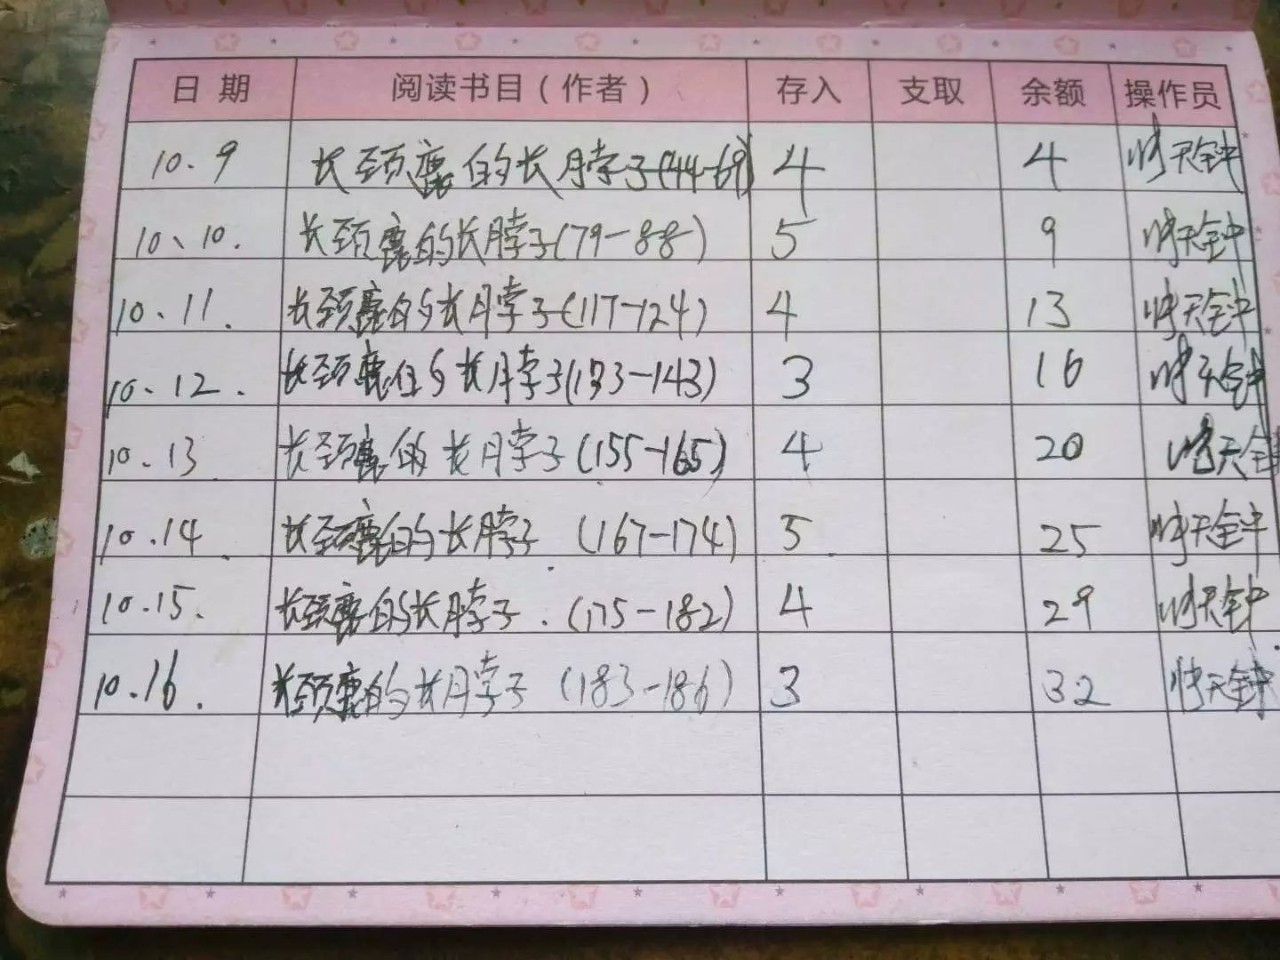 日期 阅读书目（作者） 存入 支取 余额 操作员
10.9 长颈鹿的长脖子(44-69) 4 4 天钟
10、10. 长颈鹿的长脖子(79-88) 5 9 天钟
10、11. 长颈鹿的长脖子(117-124) 4 13 天钟
10、12. 长颈鹿的长脖子(133-143) 3 16 天钟
10.13 长颈鹿的长脖子(155-165) 4 20 天钟
10.14 长颈鹿的长脖子 (167-174) 5 25 天钟
10.15. 长颈鹿的长脖子. (175-182) 4 29 天钟
10.16. 长颈鹿的长脖子 (183-186) 3 32 天钟